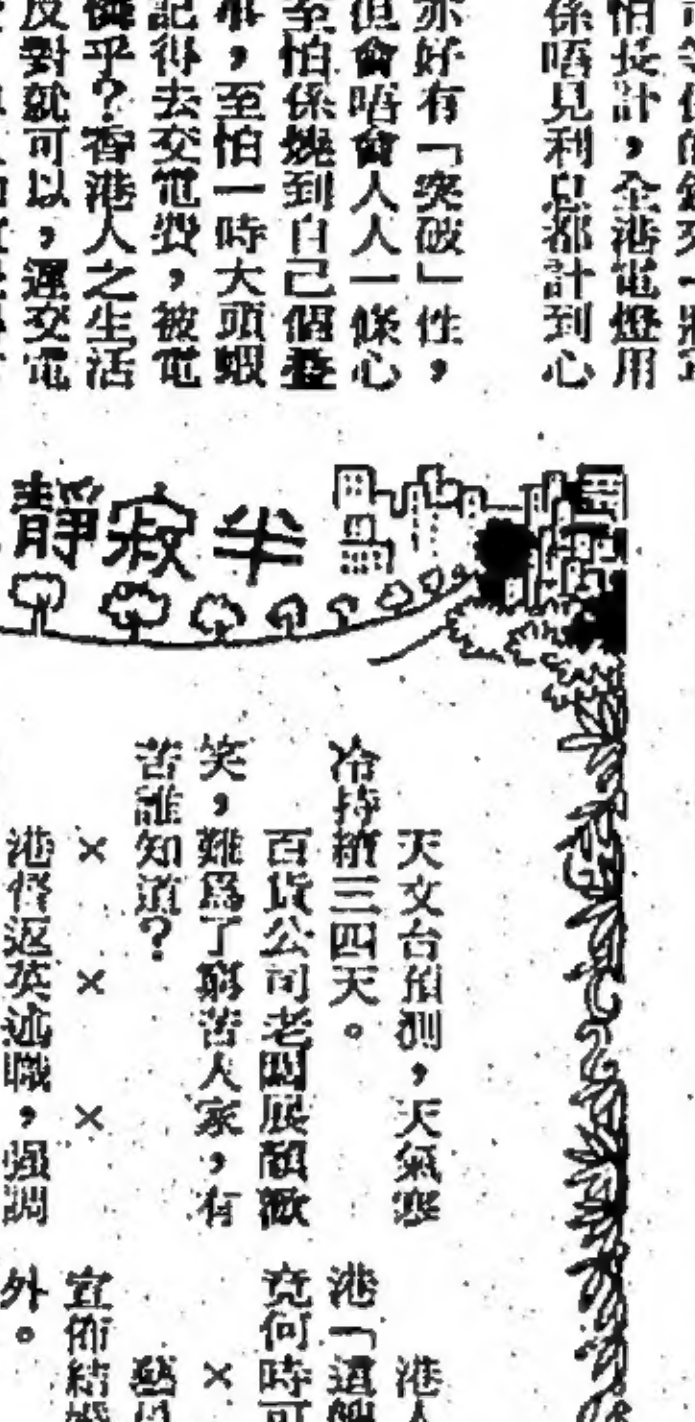 怕長計，全港電燈用
係唔見利息都計到心
亦好有「突破」性，
但會唔會人人一條心
至怕係燒到自己個疊
，至怕一時大頭蝦
記得去交電費，被電
憐乎？香港人之生活
反對就可以，遲交電
半寂靜
天文台預測，天氣寒
冷持續三四天。
百貨公司老闆展顏歡
笑，難爲了窮苦人家，有
苦誰知道？
× × ×
港督返英述職，強調
港人
港「
竟何時可
×
藝員
宣佈結婚
外。